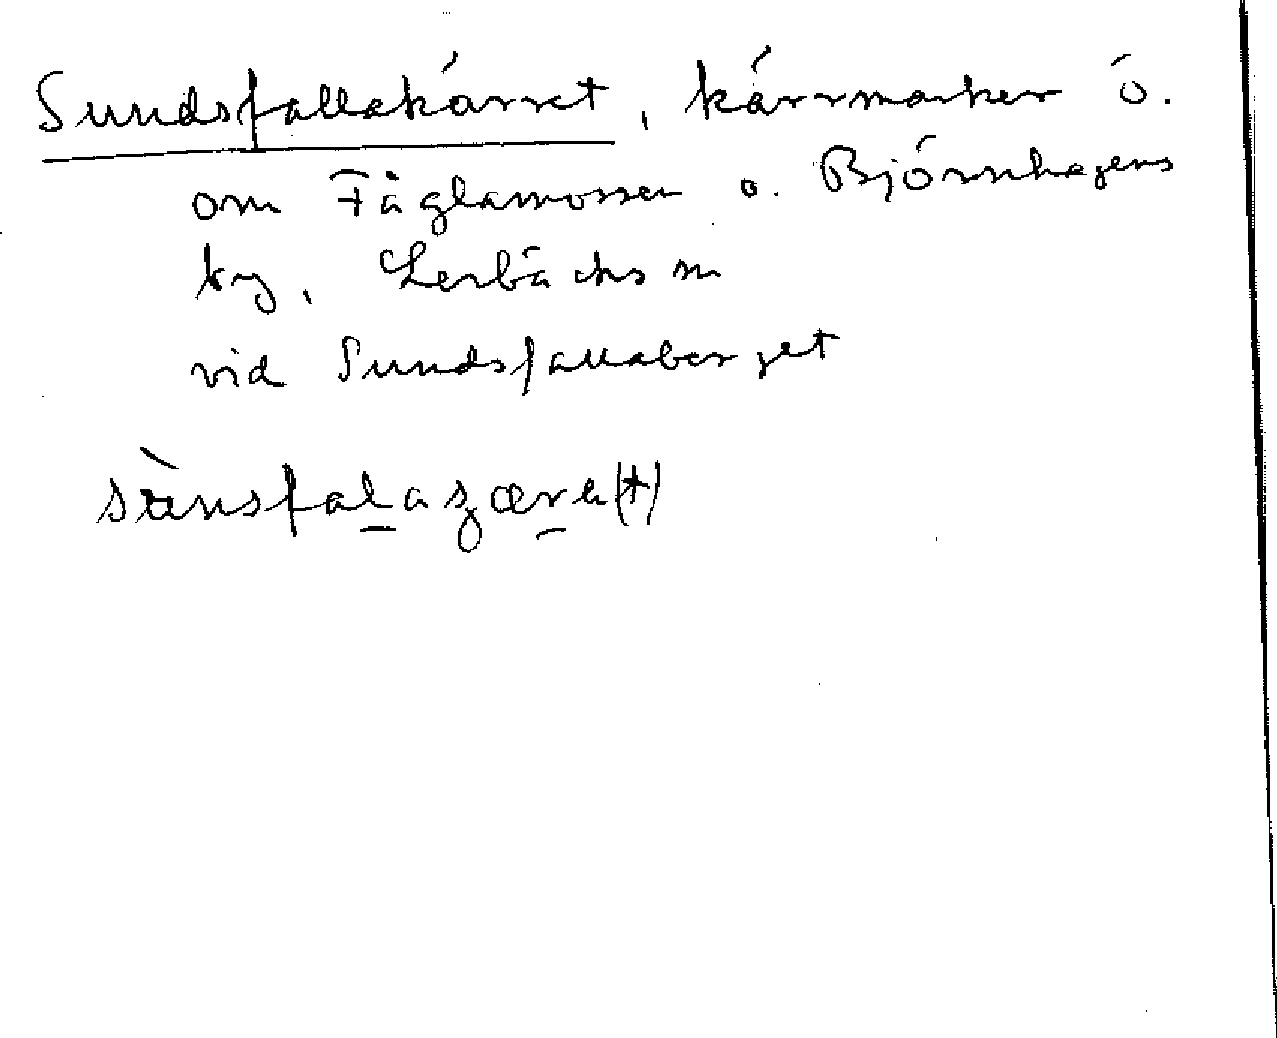 Sundsfallakärret, kärrmarker ö.
om Fåglamossen o. Björnhagens
by, Lerbäcks sn
vid Sundsfallaberget
sùnsfalaȿære(t)